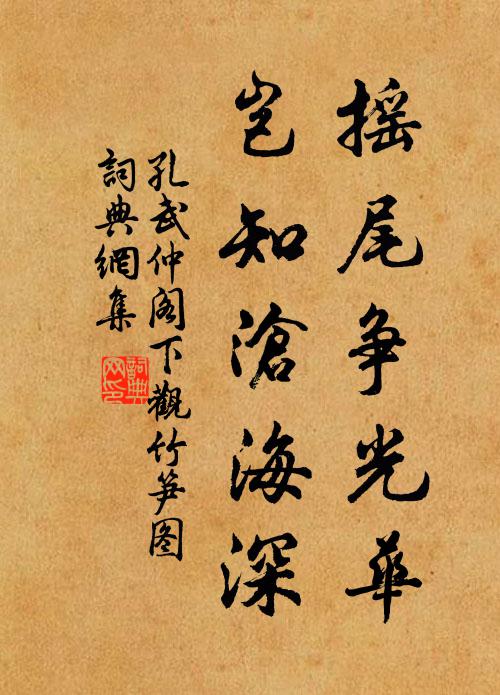 摇尾争光華
岂知滄海深
孔武仲阁下觀竹笋图
詞典網集
詞典网印